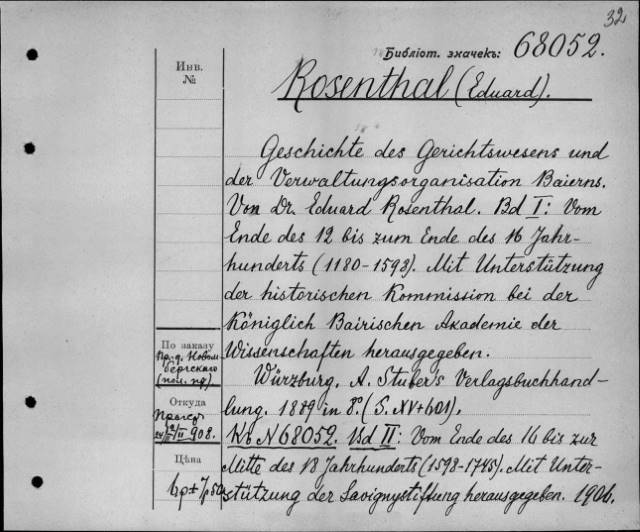 32
Библіот. значекъ: 68052.
Инв.
№
Rosenthal (Eduard).
Geschichte des Gerichtswesens und
der Verwaltungsorganisation Baierns.
Von Dr. Eduard Rosenthal. Bd I: Vom
Ende des 12 bis zum Ende des 16 Jahr-
hunderts (1180-1598). Mit Unterstützung
der historischen Kommission bei der
Königlich Bairischen Akademie der
Wissenschaften herausgegeben.
По заказу
Würzburg, A. Stuber's Verlagsbuchhand-
lung. 1889 in 8º. (S. XV+601).
Откуда
908.
Къ N 68052. Bd II: Vom Ende des 16 bis zur
Mitte des 18 Jahrhunderts (1598-1745). Mit Unter-
stützung der Savignystiftung herausgegeben. 1906.
Цѣна